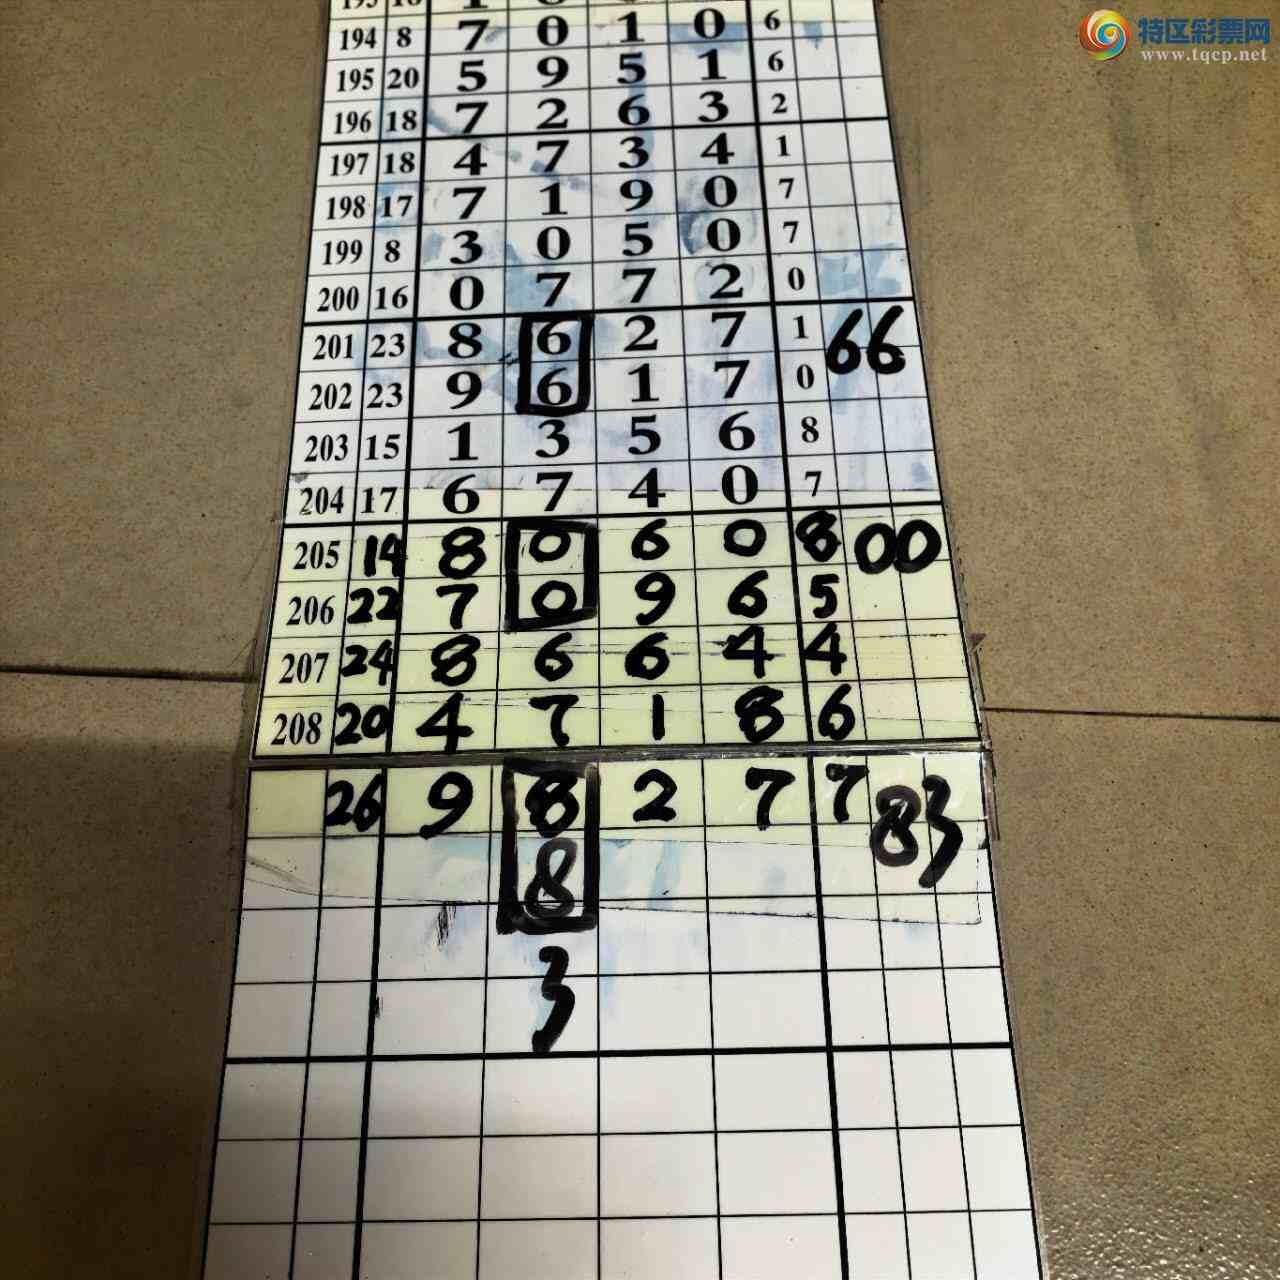 特区彩票网
www.tqcp.net
194 8 7 0 1 0 6
195 20 5 9 5 1 6
196 18 7 2 6 3 2
197 18 4 7 3 4 1
198 17 7 1 9 0 7
199 8 3 0 5 0 7
200 16 0 7 7 2 0
201 23 8 6 2 7 1 66
202 23 9 6 1 7 0
203 15 1 3 5 6 8
204 17 6 7 4 0 7
205 14 8 0 6 0 8 00
206 22 7 0 9 6 5
207 24 8 6 6 4 4
208 20 4 7 1 8 6
26 9 8 2 7 7 83
8
3